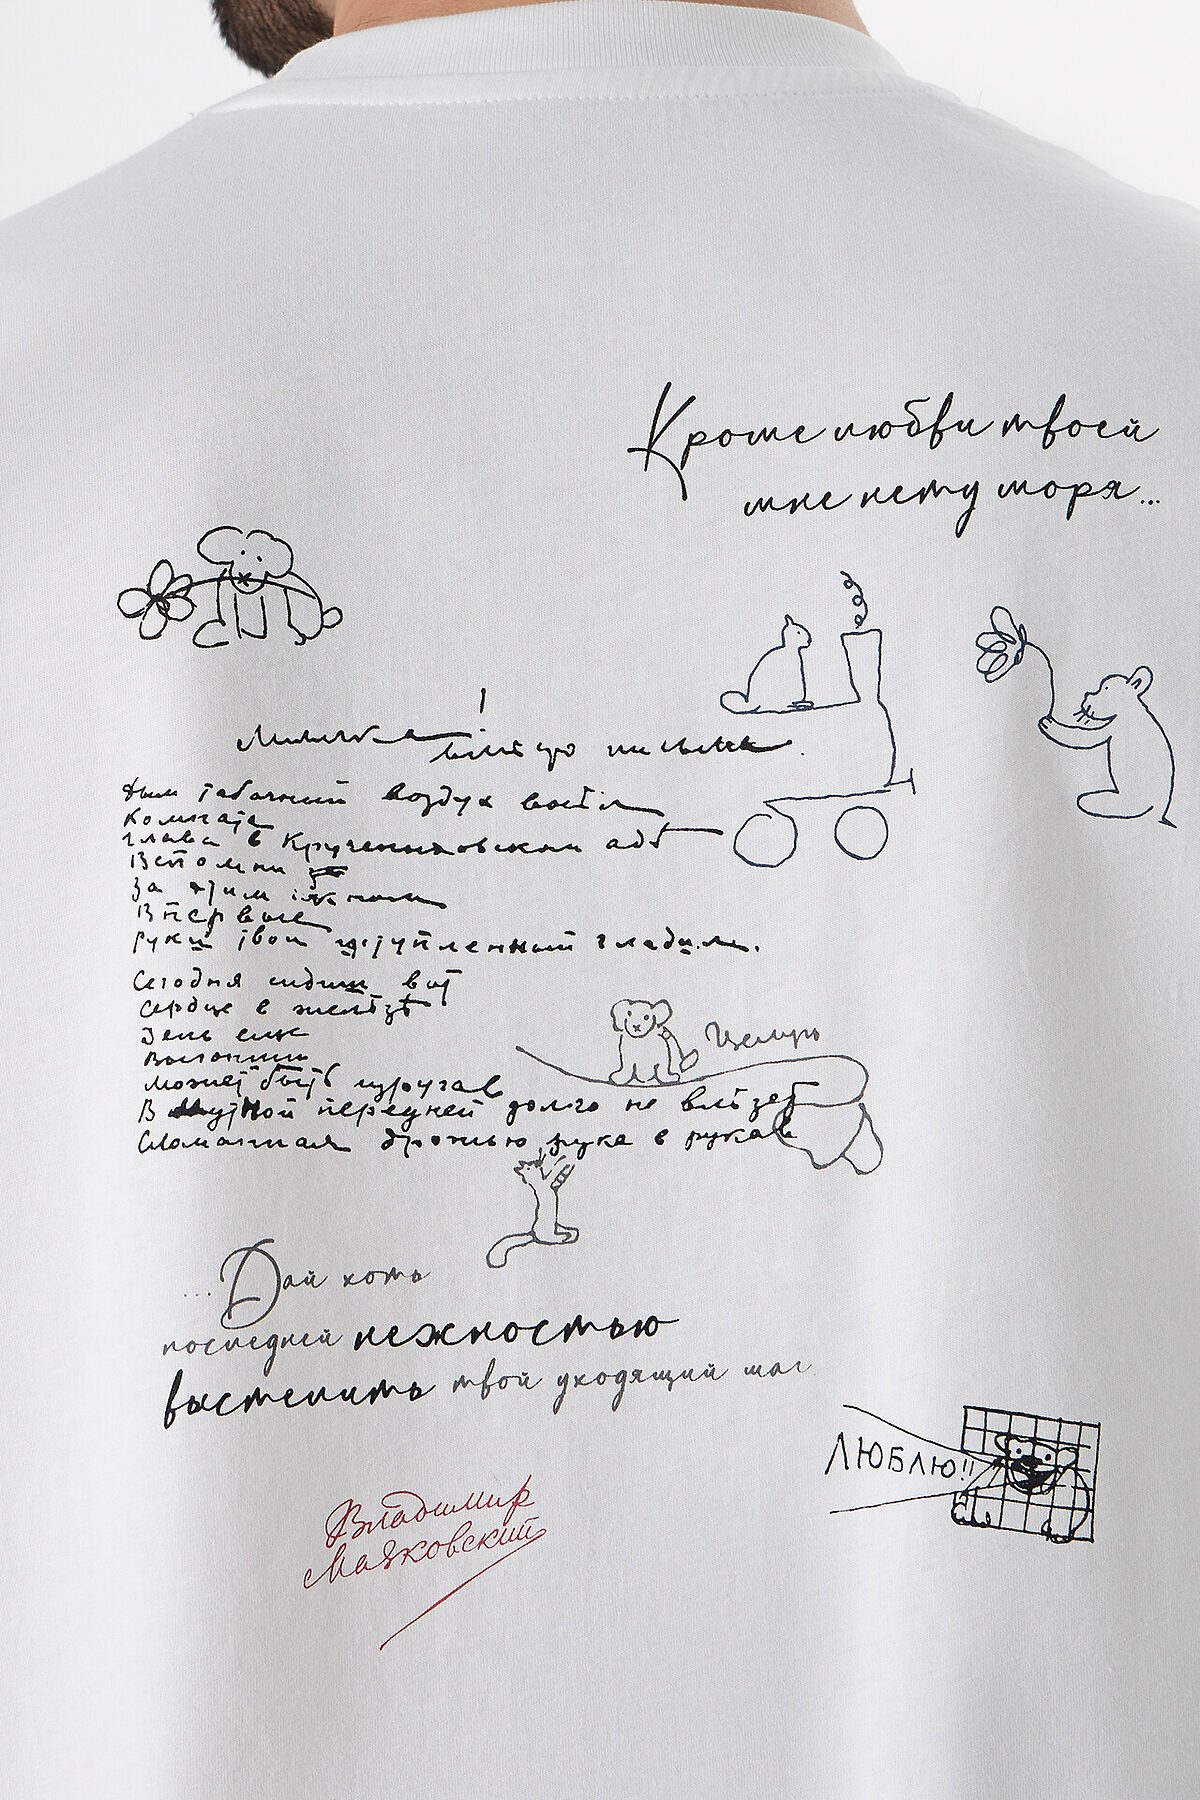 Кроме любви твоей
мне нету моря...
Лиличка!
вместо письма.
Дым табачный воздух выел
Комната
глава в Крученыховском аде
Вспомни
За этим окном
Впервые
Руки твои исступленный гладил.
Сегодня сидишь вот
Сердце в железе
День еще
Выгонишь
Может быть изругав
В мутной передней долго не влезет
Сломанная дрожью рука в рукав
...Дай хоть
последней нежностью
выстелить твой уходящий шаг
ЛЮБЛЮ!!
Владимир
Маяковский